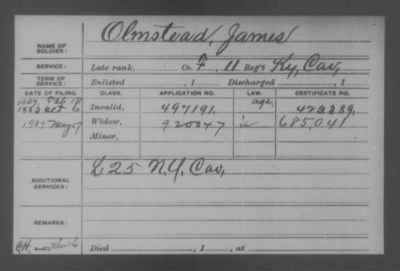 Olmstead, James
NAME OF SOLDIER:
SERVICE: Late rank, Co. F, 11 Reg't Ky, Cav,
TERM OF SERVICE: Enlisted , 1 Discharged , 1
DATE OF FILING. CLASS. APPLICATION NO. LAW. CERTIFICATE NO.
1883 Oct 6 Invalid, 497191. age. 423289.
1909 May 17 Widow, 920047 685.041
Minor,
ADDITIONAL SERVICES: L 25 N.Y. Cav,
REMARKS:
Died , 1 , at